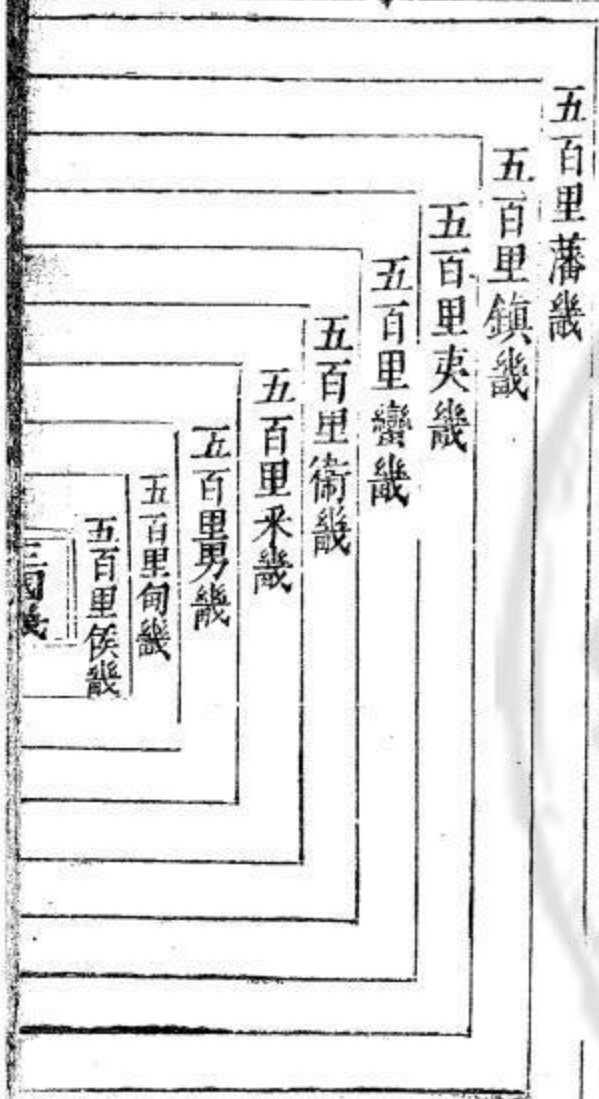 五百里藩畿
五百里鎮畿
五百里夷畿
五百里蠻畿
五百里衛畿
五百里采畿
五百里男畿
五百里甸畿
五百里侯畿
國畿